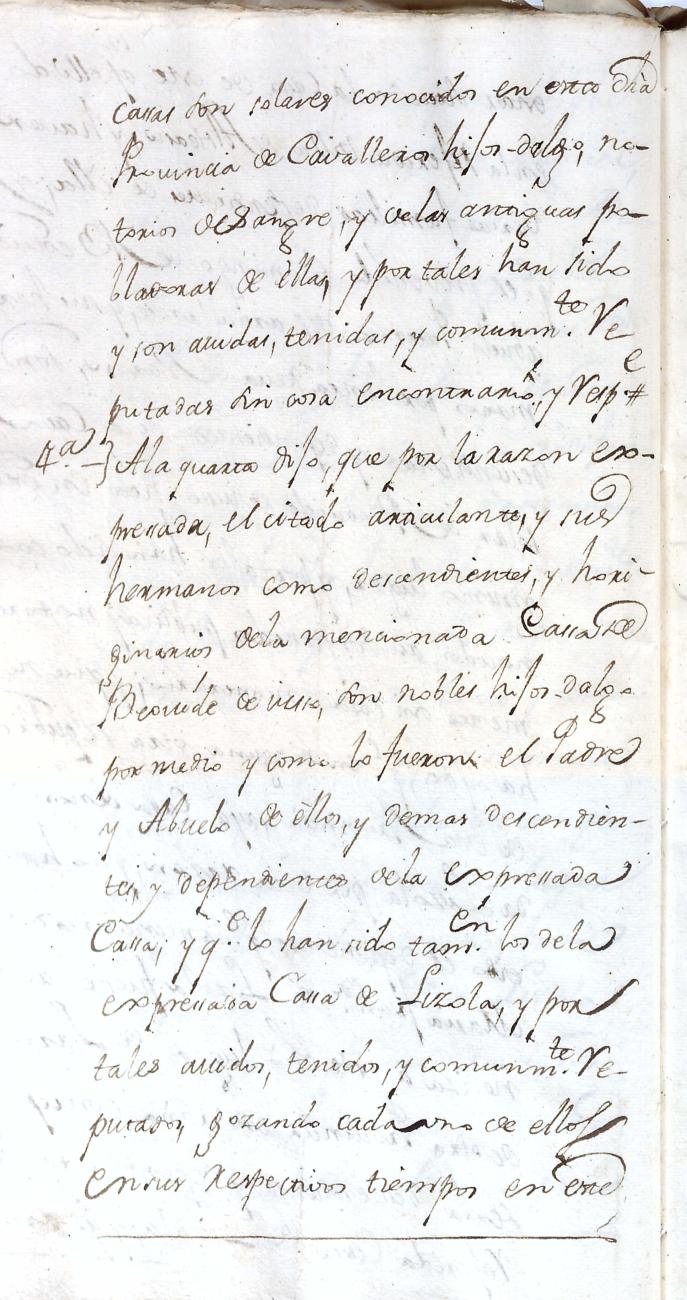 cassas son solares conocidos en esta dha
Provincia de Cavalleros hijos-dalgo, no-
torios de Sangre, y de las antiguas po-
bladoras de ellas, y por tales han sido
y son auidas, tenidas, y comunmte. Re-
putadas sin cosa encontrario, y Respe #
4a.-} A la quarta dijo, que por la razon ex-
pressada, el citado articulante, y sus
hermanos como descendientes, y hori-
ginarios de la mencionada Cassa de
de iusso, son nobles hijos-dalgo
por medio y como lo fueron el Padre
y Abuelo de ellos, y demas descendien-
tes, y dependientes de la expressada
Cassa, y qe. lo han sido tamen. los de la
expressada Cassa de Lizola, y por
tales auidos, tenidos, y comunmte. Re-
putados, gozando cada uno de ellos
en sus Respectivos tiempos en este